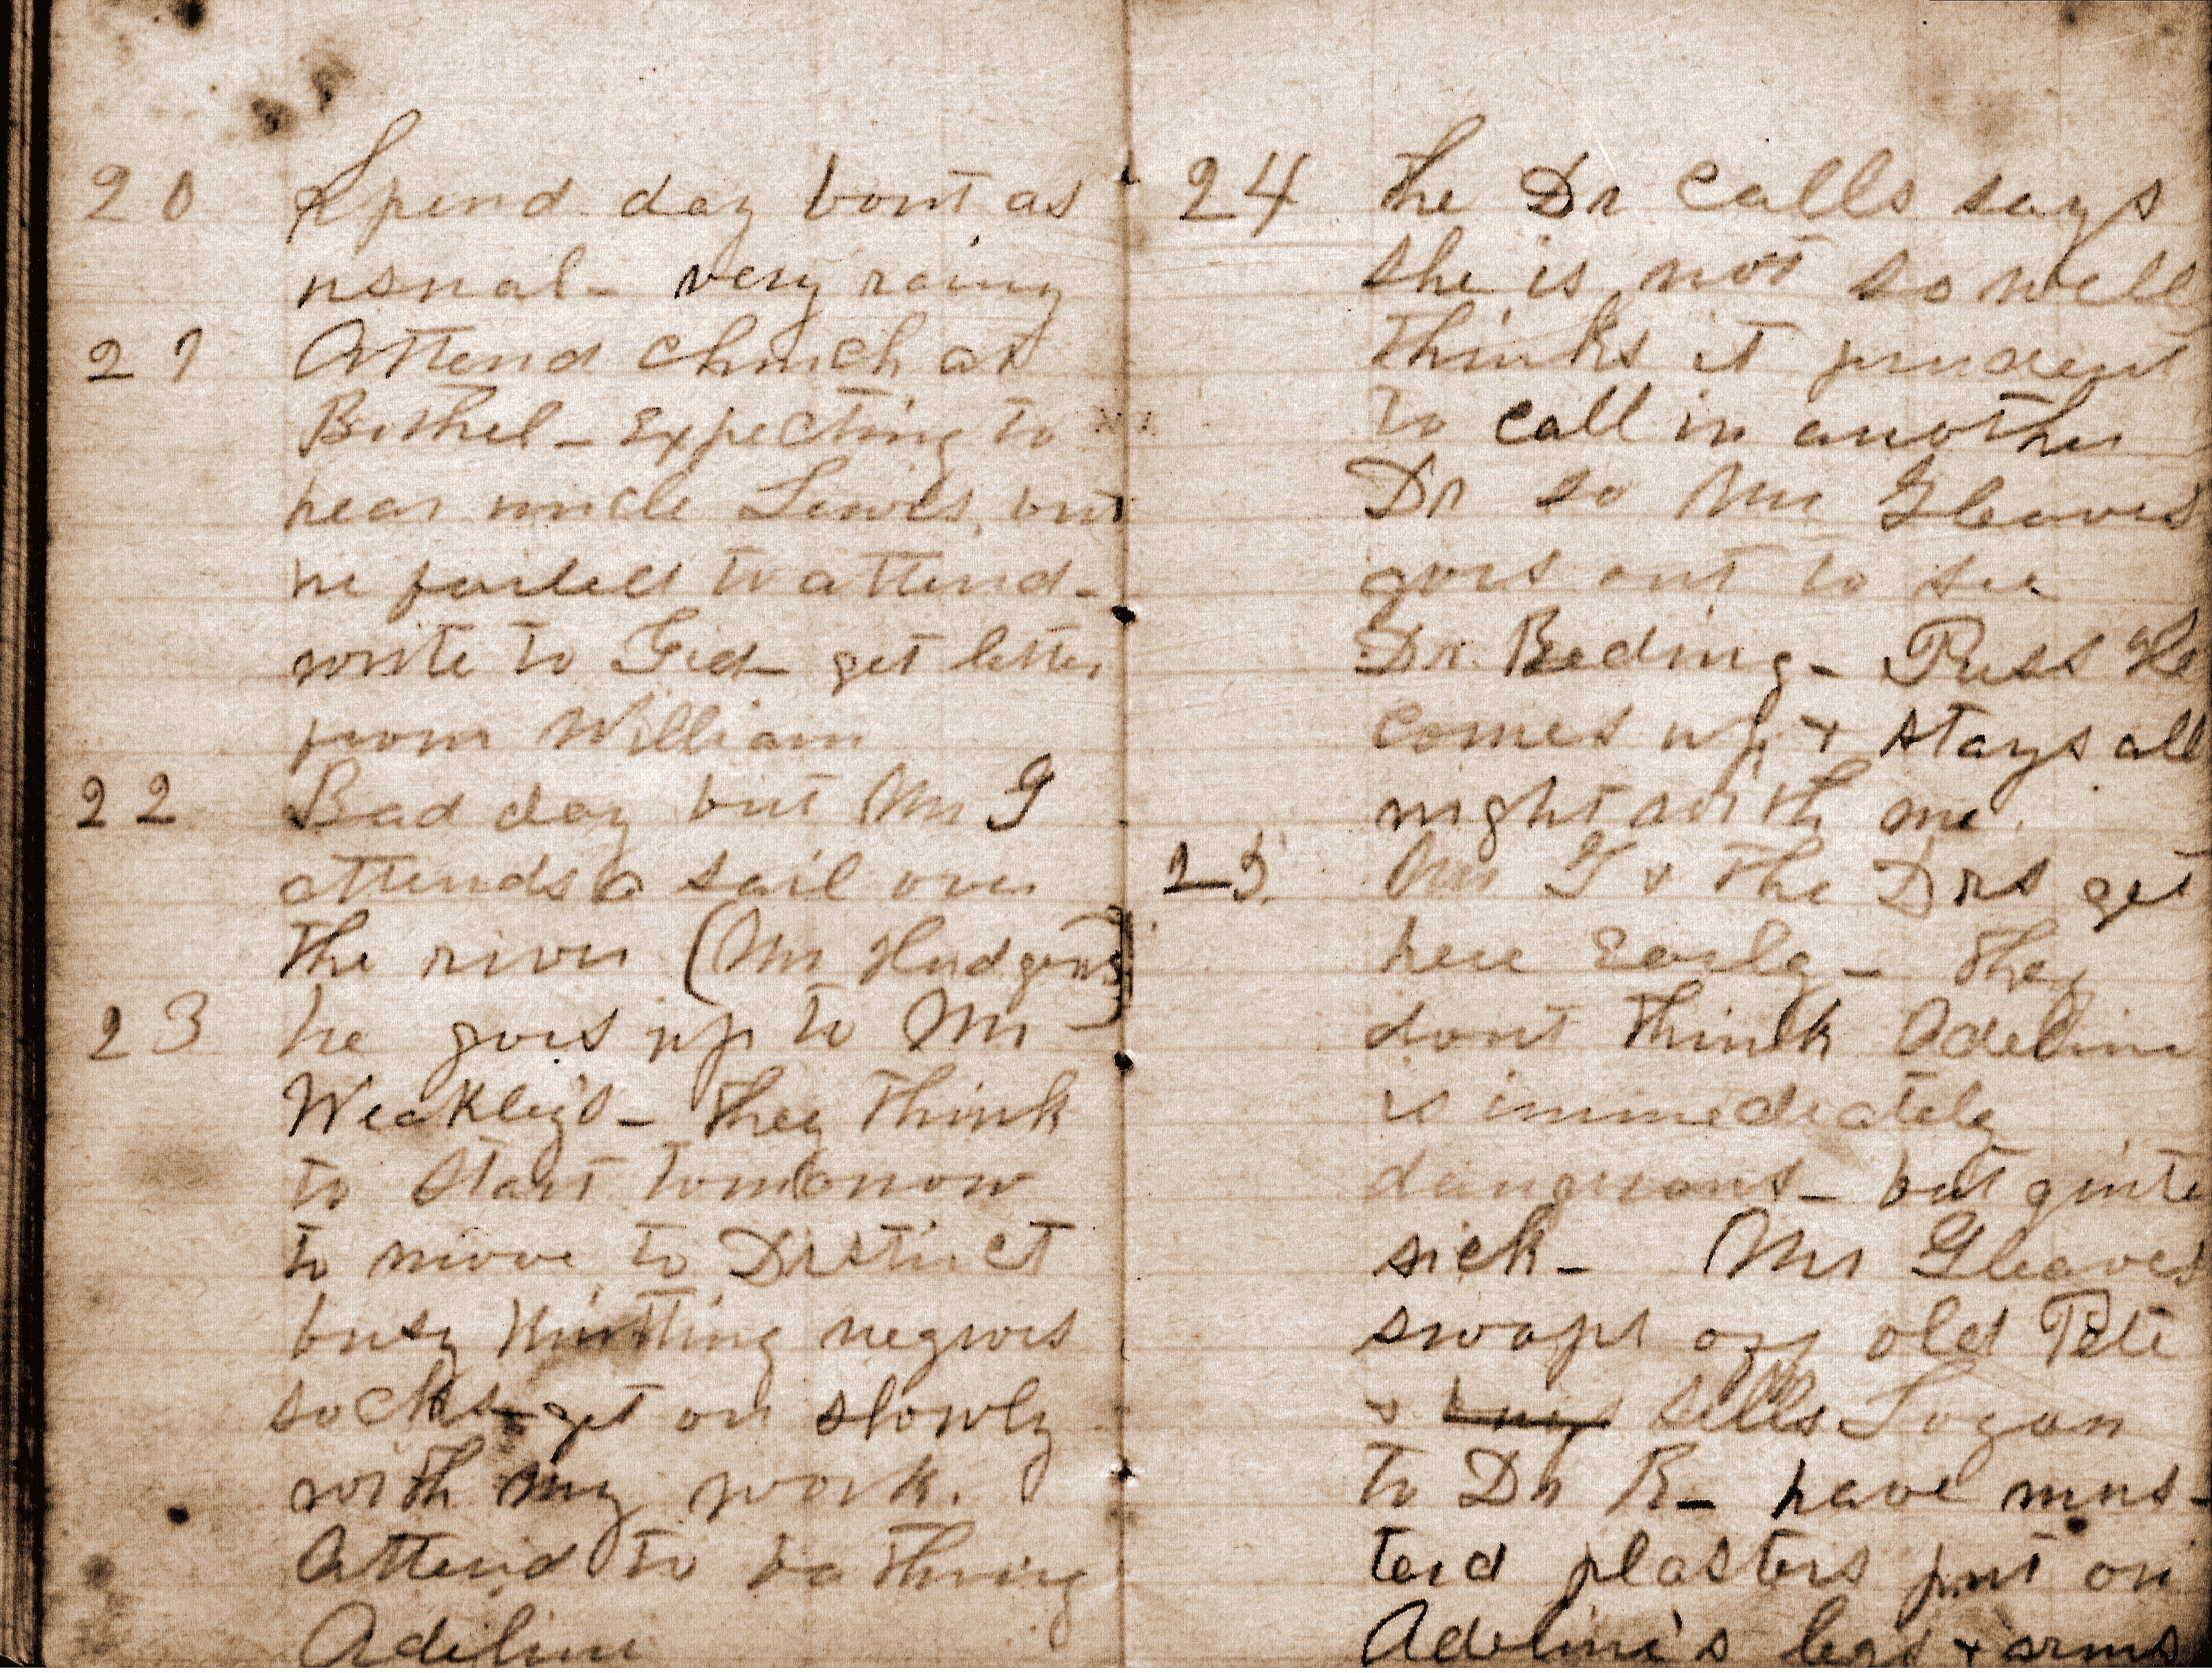 20 Spend day bout as
usual - very rainy
21 Attend church at
Bethel - Expecting to
hear uncle Lewis, but
he failed to attend -
write to Gid - get letter
from William
22 Bad day but Mr G
attends a sail over
the river (Mr Hudgens)
23 he goes up to Mr
Weakley's - they think
to start tomorrow
to move to Distrct
busy knitting negroes
socks - get on slowly
with my work.
Attend to bathing
Adeline
24 the Dr calls says
she is not so well
thinks it prudent
to call in another
Dr so Mr Gleaves
goes out to see
Dr. Beding - Puss
comes up + stays all
night with me.
25. Mr G + the Drs get
here Early - they
dont think Adeline
is immediately
dangerous - but quite
sick - Mr Gleaves
swaps off old Pete
+ sells Logan
to Dr B - have mus-
tard plasters put on
Adeline's legs + arms